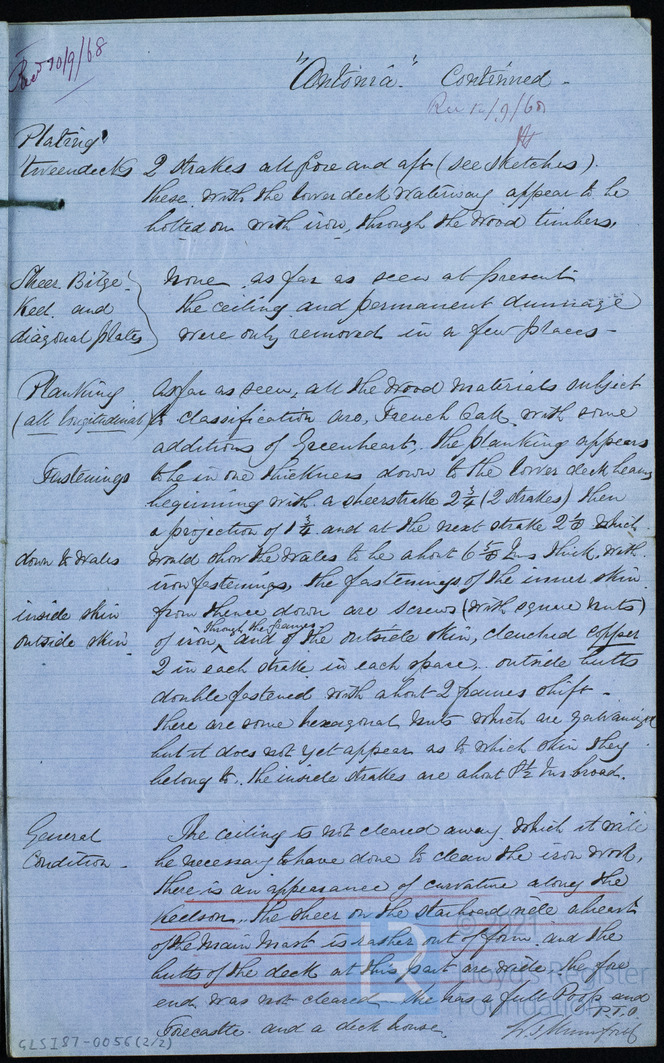 Recd 10/9/68
"Antonia" Continued -
Rec 10/9/68
Plating
tweendecks 2 strakes all fore and aft (see sketches).
these, with the lower deck waterway appear to be
bolted on with iron, through the wood timbers.
Sheer. Bilge. None, as far as seen at present
Keel and the ceiling and permanent dunnage
diagonal plates were only removed in a few places -
Planking as far as seen, all the wood materials subject
(all longitudinal) to classification are, French Oak with some
additions of Greenheart, the planking appears
Fastenings to be in one thickness down to the lower deck beams
beginning with a sheerstrake 2 3/4 (2 strakes) then
a projection of 1 3/4 and at the next strake 2 which
down to Wales would show the Wales to be about 6 Ins thick, with
iron fastenings, the fastenings of the inner skin
inside skin from thence down are screws (with square nuts)
through the frames
outside skin of iron, and of the outside skin, clenched copper
2 in each strake in each space, outside butts
double fastened with about 2 frames shift -
there are some hexagonal nuts which are galvanized
but it does not yet appear as to which skin they
belong to. the inside strakes are about 8 1/2 Ins broad.
General The ceiling is not cleared away, which it will
Condition - be necessary to have done to clean the iron work,
there is an appearance of curvature along the
Keelson, the sheer on the starboard side abreast
of the Main Mast is rather out of form and the
butts of the deck at this part are wide. the fore
end was not cleared - she has a full Poop and
P.T.O.
Forecastle and a deck house.
© 2021
LR
Lloyd's Register
Foundation
GLSI57-0056(2/2)